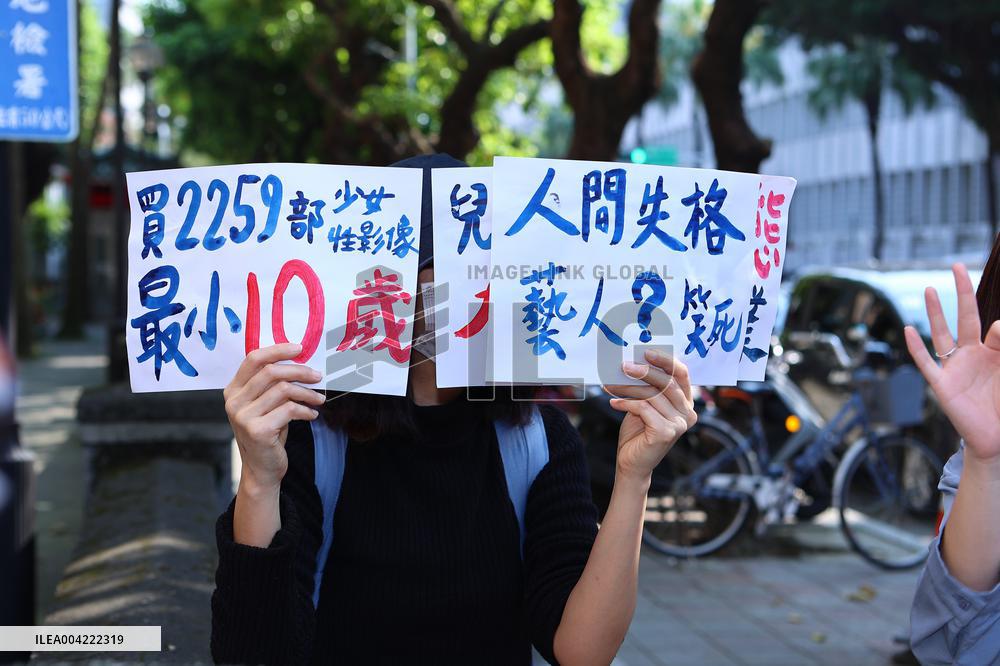 檢署
買2259部少女
性影像
最小10歲
兒
人間失格
藝人?笑死
IMAGE LINK GLOBAL
ILG
ILEA004222319